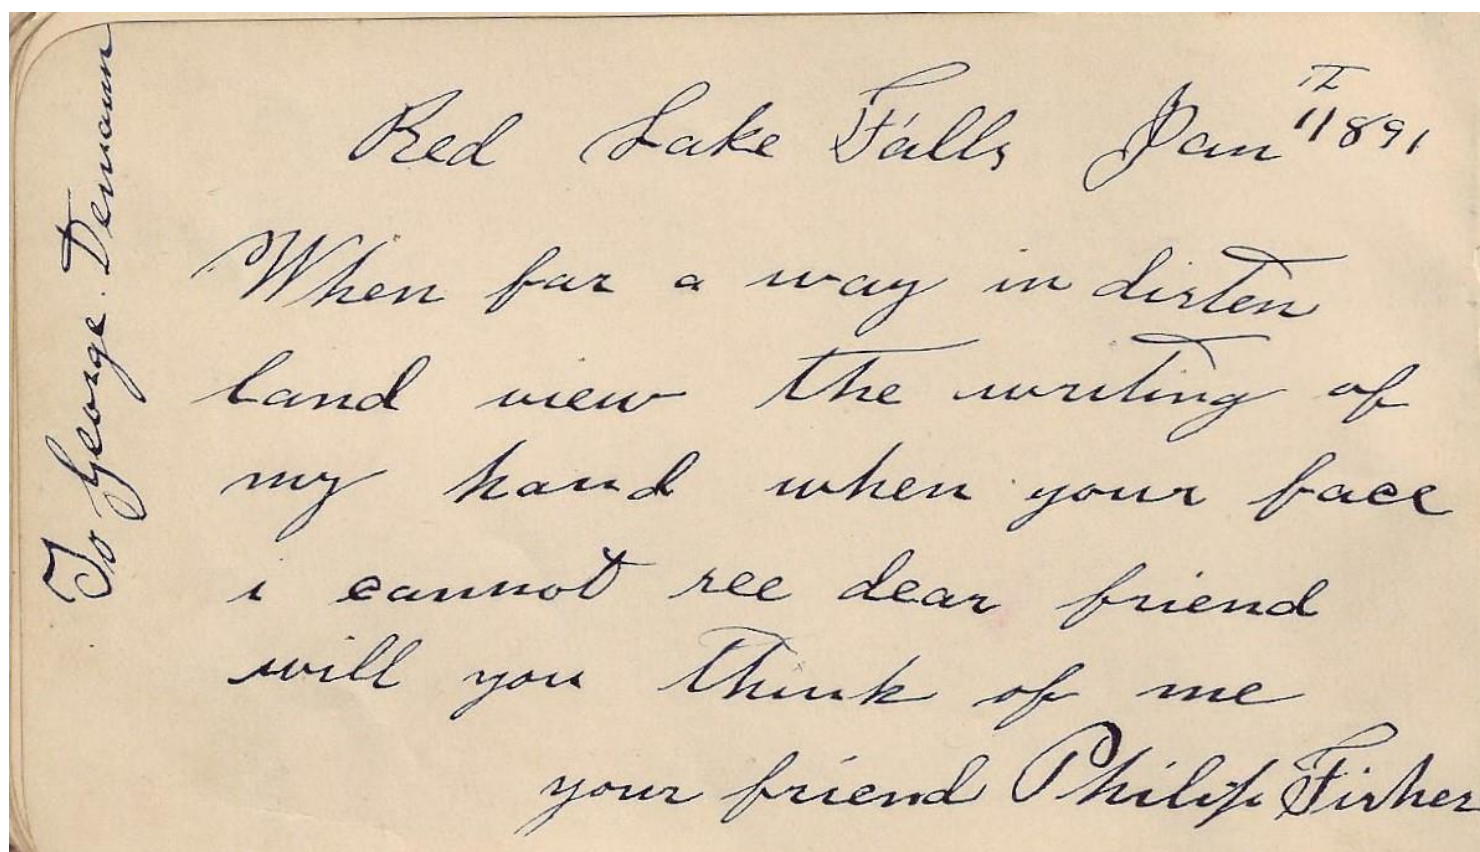 To George. Demann
Red Lake Falls Jan 11th 1891
When far a way in disten
land view the writing of
my hand when your face
i cannot see dear friend
will you think of me
your friend Philip Fisher